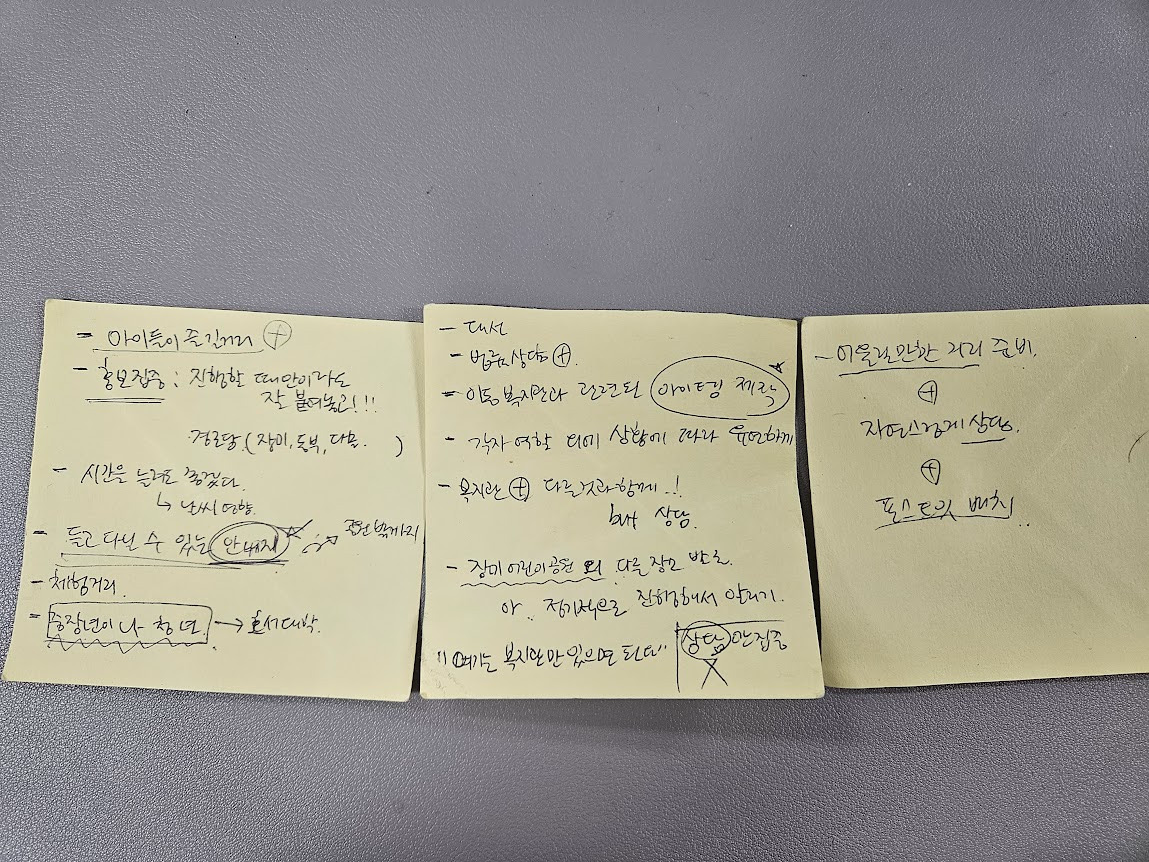 - 아이들이 즐길거리 ⊕
- 홍보집중 : 진행할 때만이라도
잘 붙여놓기!!!
경로당 (장미, 동부, 다올. )
- 시간을 늘려도 좋겠다.
↳ 날씨 영향
- 들고 다닐 수 있는 안내지 → 공원 밖까지
- 체험거리
- 중장년이나 청년 →
- 대선
- 법률상담 ⊕.
- 이동복지관과 관련된 아이템 제작
- 각자 역할 외에 상황에 따라 유연하게
- 복지관 ⊕ 다른것과 함께 -!
but 상담.
- 장미 어린이공원 외 다른 장소 발로.
아. 정기적으로 진행해서 알리기.
"여기는 복지관만 있으면 된다" 상담 안집중
- 어울릴만한 거리 준비.
⊕
자연스럽게 상담.
⊕
포스트잇 배치